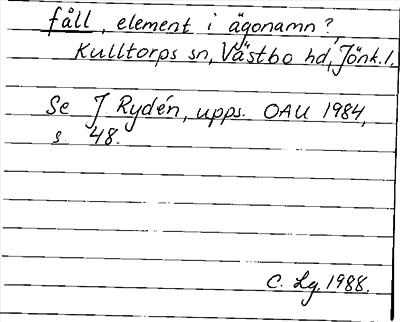 fåll, element i ägonamn?,
Kulltorps sn, Västbo hd, Jönk. l.
Se J Rydén, upps. OAU 1984,
s. 48.
C. Lg. 1988.